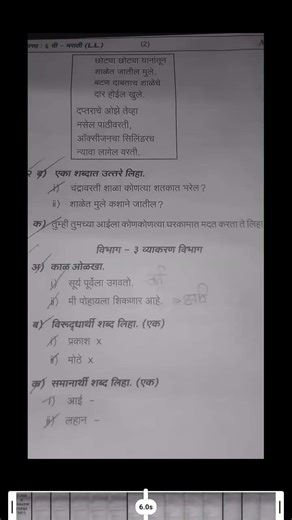 इयत्ता : ६ वी - मराठी (L.L.) (2)
छोट्या छोट्या यानांतून
शाळेत जातील मुले,
बटण दाबताच शाळेचे
दार होईल खुले.
दप्तराचे ओझे तेव्हा
नसेल पाठीवरती,
ऑक्सीजनचा सिलिंडरच
न्यावा लागेल वरती.
२ ब) एका शब्दात उत्तरे लिहा.
i) चंद्रावरती शाळा कोणत्या शतकात भरेल ?
ii) शाळेत मुले कशाने जातील ?
क) तुम्ही तुमच्या आईला कोणकोणत्या घरकामात मदत करता ते लिहा
विभाग - ३ व्याकरण विभाग
अ) काळ ओळखा.
i) सूर्य पूर्वेला उगवतो.
ii) मी पोहायला शिकणार आहे.
ब) विरूद्धार्थी शब्द लिहा. (एक)
i) प्रकाश x
ii) मोठे x
क) समानार्थी शब्द लिहा. (एक)
i) आई -
ii) लहान -
6.0s